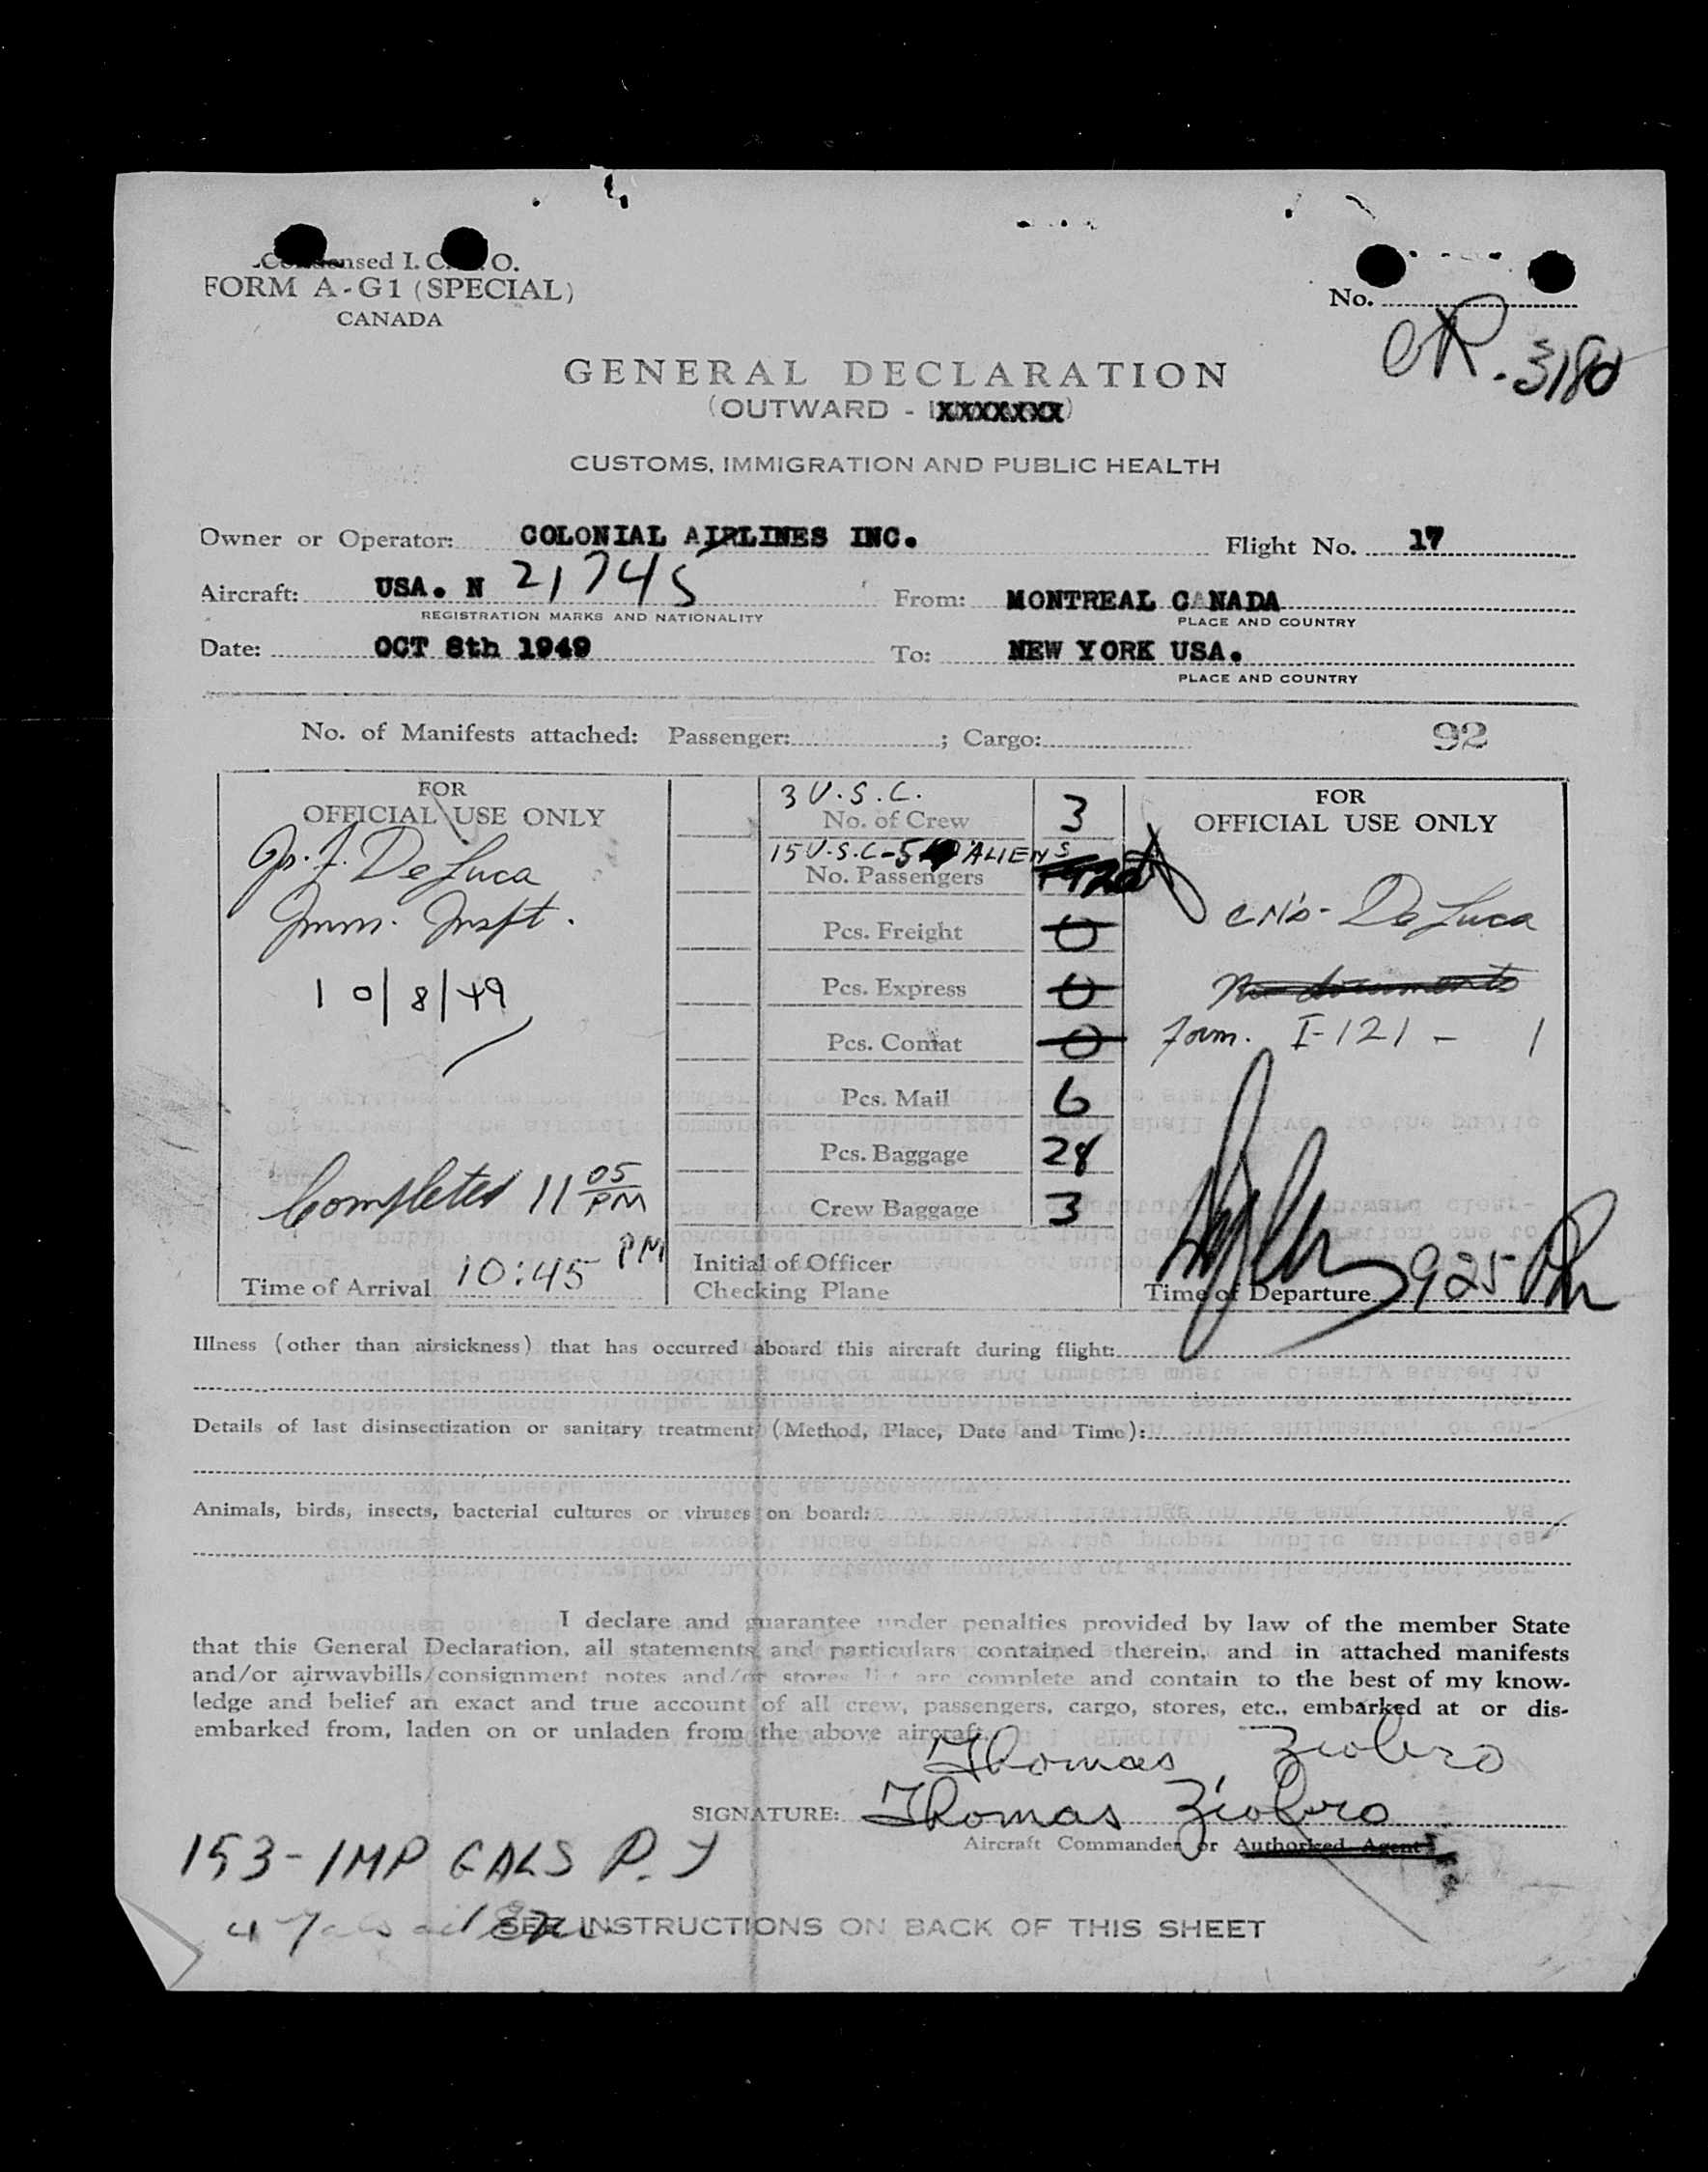 Condensed I. C. O.
FORM A-G1 (SPECIAL)
CANADA
No.
3180
GENERAL DECLARATION
(OUTWARD - IXXXXXXX)
CUSTOMS, IMMIGRATION AND PUBLIC HEALTH
Owner or Operator: COLONIAL AIRLINES INC. Flight No. 17
Aircraft: USA. N 21745 From: MONTREAL CANADA
REGISTRATION MARKS AND NATIONALITY PLACE AND COUNTRY
Date: OCT 8th 1949 To: NEW YORK USA.
PLACE AND COUNTRY
No. of Manifests attached: Passenger: ; Cargo: 92
FOR
OFFICIAL USE ONLY
De Luca
Imm. Inspt.
10/8/49
Completed 11 05 PM
Time of Arrival 10:45 PM
3 U.S.C.
No. of Crew 3
15 U.S.C-5 ALIENS
No. Passengers
Pcs. Freight 0
Pcs. Express 0
Pcs. Comat 0
Pcs. Mail 6
Pcs. Baggage 28
Crew Baggage 3
Initial of Officer
Checking Plane
FOR
OFFICIAL USE ONLY
De Luca
No documents
Form. I-121 - 1
Time of Departure 925 Pm
Illness (other than airsickness) that has occurred aboard this aircraft during flight:
Details of last disinsectization or sanitary treatment (Method, Place, Date and Time):
Animals, birds, insects, bacterial cultures or viruses on board:
I declare and guarantee under penalties provided by law of the member State
that this General Declaration, all statements and particulars contained therein, and in attached manifests
and/or airwaybills/consignment notes and/or stores list are complete and contain to the best of my know-
ledge and belief an exact and true account of all crew, passengers, cargo, stores, etc., embarked at or dis-
embarked from, laden on or unladen from the above aircraft.
Thomas Ziobro
SIGNATURE: Thomas Ziobro
Aircraft Commander or Authorized Agent
153-IMP GALS
SEE INSTRUCTIONS ON BACK OF THIS SHEET